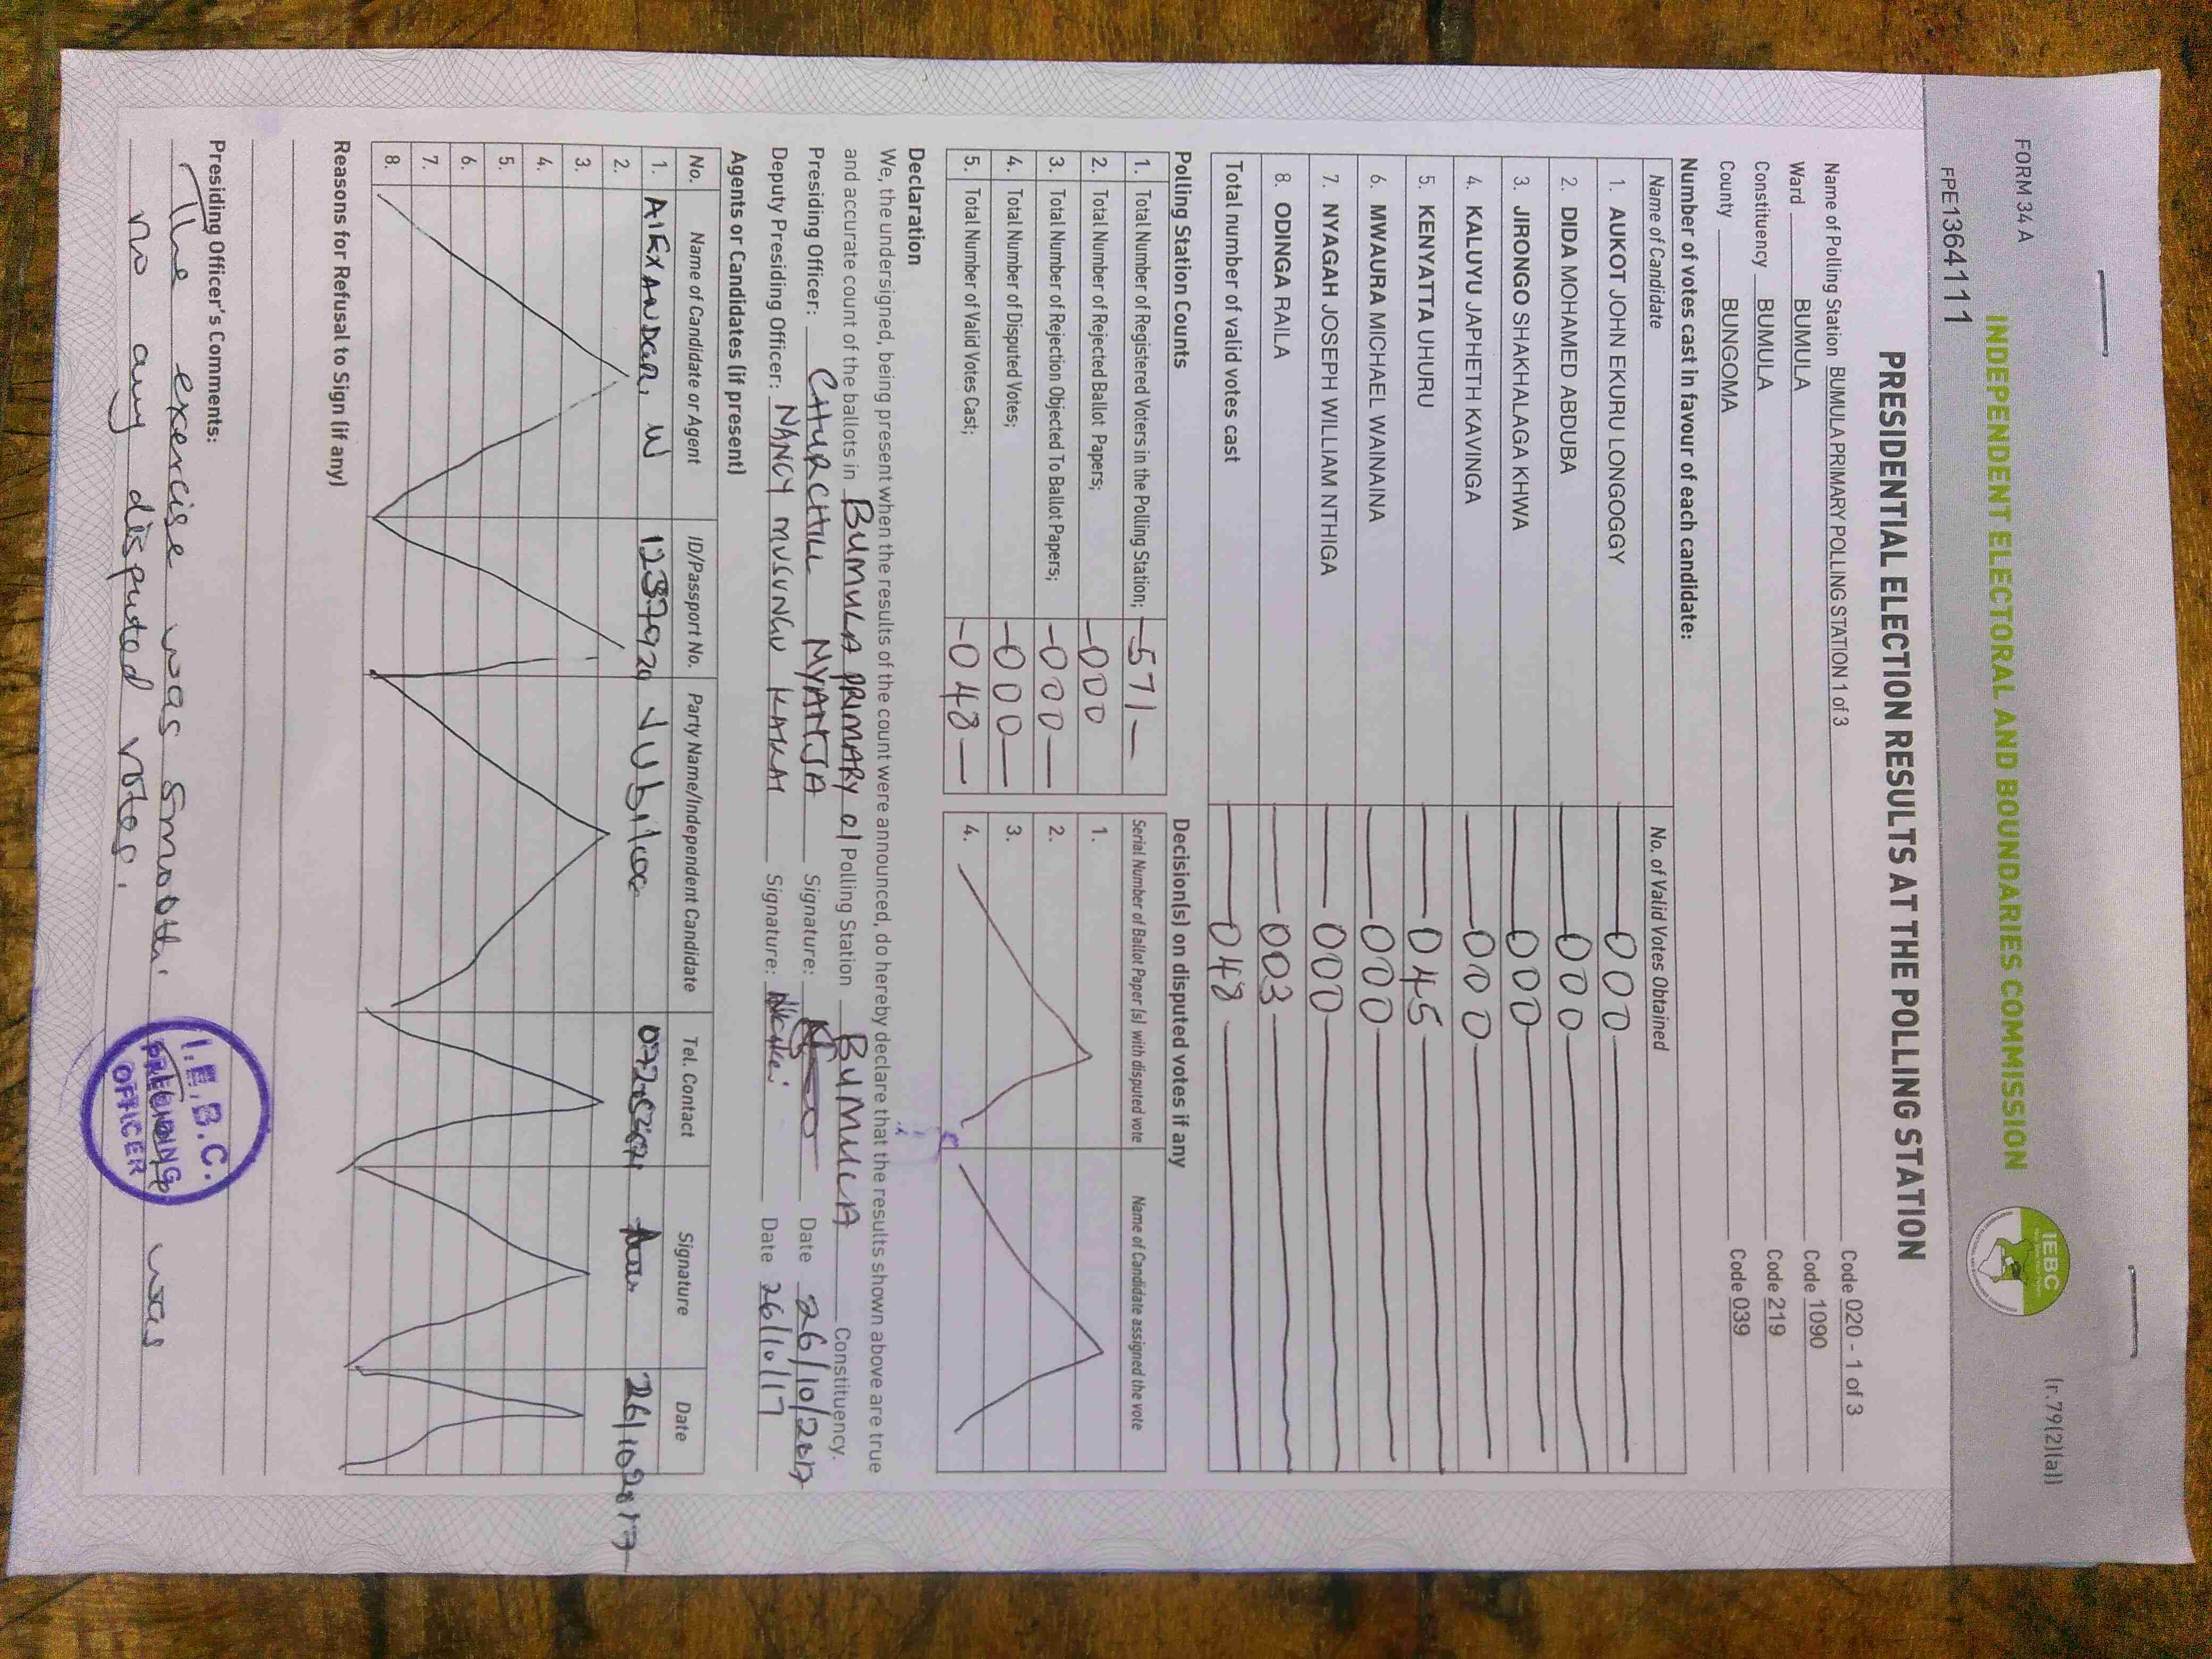 FORM 34 A
(r.79(2)(a))
INDEPENDENT ELECTORAL AND BOUNDARIES COMMISSION
IEBC
FPE1364111
PRESIDENTIAL ELECTION RESULTS AT THE POLLING STATION
Name of Polling Station BUMULA PRIMARY POLLING STATION 1 of 3 Code 020 - 1 of 3
Ward BUMULA Code 1090
Constituency BUMULA Code 219
County BUNGOMA Code 039
Number of votes cast in favour of each candidate:
Name of Candidate No. of Valid Votes Obtained
1. AUKOT JOHN EKURU LONGOGGY 000
2. DIDA MOHAMED ABDUBA 000
3. JIRONGO SHAKHALAGA KHWA 000
4. KALUYU JAPHETH KAVINGA 000
5. KENYATTA UHURU 045
6. MWAURA MICHAEL WAINAINA 000
7. NYAGAH JOSEPH WILLIAM NTHIGA 000
8. ODINGA RAILA 003
Total number of valid votes cast 048
Polling Station Counts
1. Total Number of Registered Voters in the Polling Station; 571
2. Total Number of Rejected Ballot Papers; 000
3. Total Number of Rejection Objected To Ballot Papers; 000
4. Total Number of Disputed Votes; 000
5. Total Number of Valid Votes Cast; 048
Decision(s) on disputed votes if any
Serial Number of Ballot Paper (s) with disputed vote Name of Candidate assigned the vote
1.
2.
3.
4.
Declaration
We, the undersigned, being present when the results of the count were announced, do hereby declare that the results shown above are true
and accurate count of the ballots in BUMULA PRIMARY Polling Station BUMULA Constituency.
Presiding Officer: CHURCHILL NYANJA Signature: Date 26/10/2017
Deputy Presiding Officer: NANCY MUSUNGU KAKAI Signature: Date 26/10/17
Agents or Candidates (if present)
No. Name of Candidate or Agent ID/Passport No. Party Name/Independent Candidate Tel. Contact Signature Date
1. AlExANDER, W Jubilee 26/10/2017
2.
3.
4.
5.
6.
7.
8.
Reasons for Refusal to Sign (if any)
Presiding Officer's Comments:
The exercise was smooth. was
no any disputed votes.
I.E.B.C.
PRESIDING
OFFICER